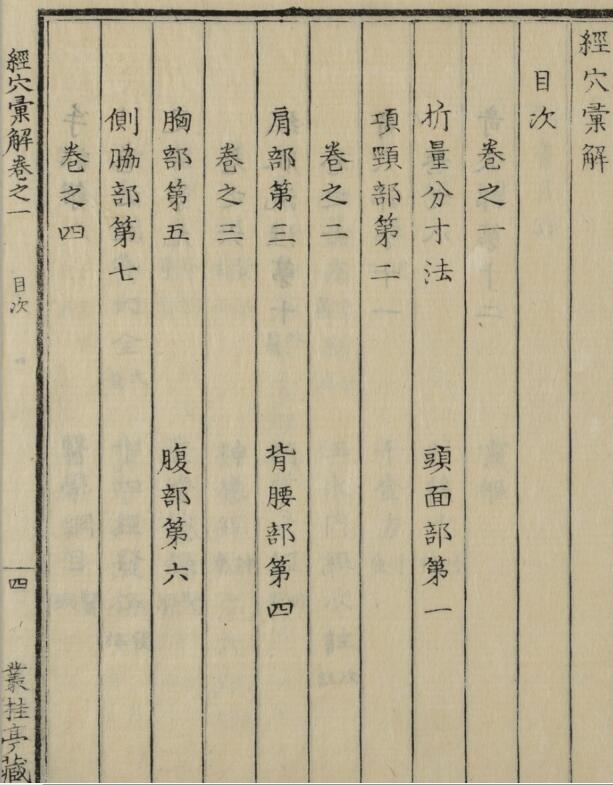 經穴彙解
目次
卷之一
折量分寸法 頭面部第一
項頸部第二
卷之二
肩部第三 背腰部第四
卷之三
胸部第五 腹部第六
側脇部第七
卷之四
經穴彙解卷之一 目次 一四 叢桂亭藏